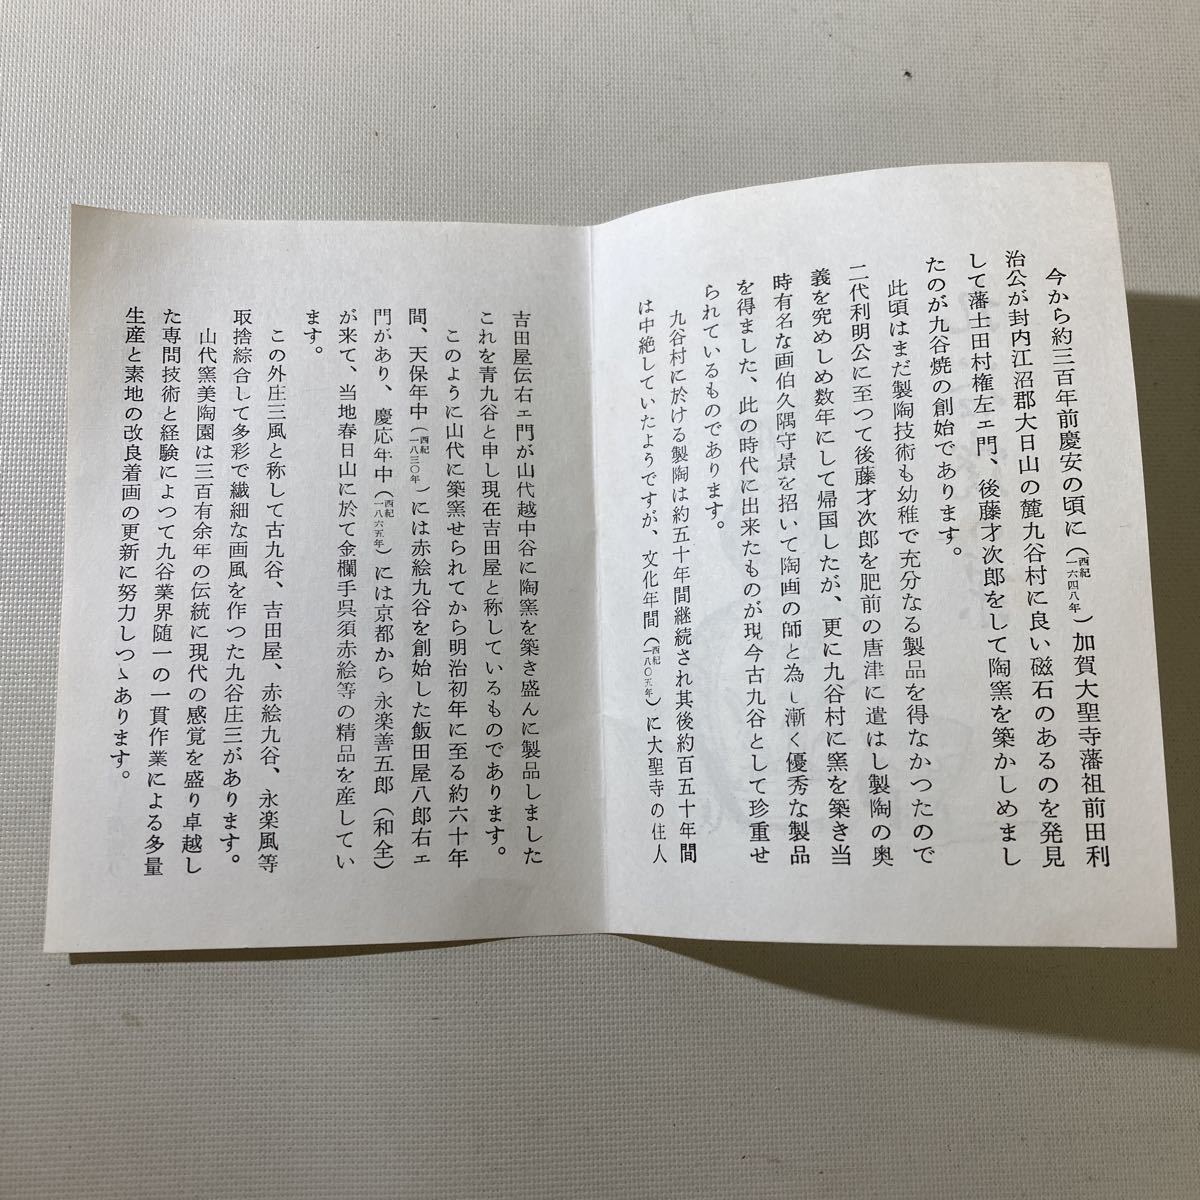 今から約三百年前慶安の頃に（西紀一六四八年）加賀大聖寺藩祖前田利
治公が封内江沼郡大日山の麓九谷村に良い磁石のあるのを発見
して藩士田村権左ェ門、後藤才次郎をして陶窯を築かしめまし
たのが九谷焼の創始であります。
此頃はまだ製陶技術も幼稚で充分なる製品を得なかつたので
二代利明公に至つて後藤才次郎を肥前の唐津に遣はし製陶の奥
義を究めしめ数年にして帰国したが、更に九谷村に窯を築き当
時有名な画伯久隅守景を招いて陶画の師と為し漸く優秀な製品
を得ました、此の時代に出来たものが現今古九谷として珍重せ
られているものであります。
九谷村に於ける製陶は約五十年間継続され其後約百五十年間
は中絶していたようですが、文化年間（西紀一八〇五年）に大聖寺の住人
吉田屋伝右ェ門が山代越中谷に陶窯を築き盛んに製品しました
これを青九谷と申し現在吉田屋と称しているものであります。
このように山代に築窯せられてから明治初年に至る約六十年
間、天保年中（西紀一八三〇年）には赤絵九谷を創始した飯田屋八郎右ェ
門があり、慶応年中（西紀一八六五年）には京都から永楽善五郎（和全）
が来て、当地春日山に於て金欄手呉須赤絵等の精品を産してい
ます。
この外庄三風と称して古九谷、吉田屋、赤絵九谷、永楽風等
取捨綜合して多彩で繊細な画風を作つた九谷庄三があります。
山代窯美陶園は三百有余年の伝統に現代の感覚を盛り卓越し
た専門技術と経験によつて九谷業界随一の一貫作業による多量
生産と素地の改良着画の更新に努力しつゝあります。